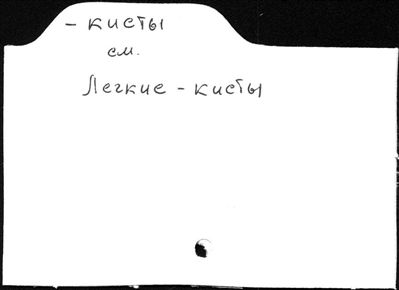 - кисты
см.
Легкие - кисты